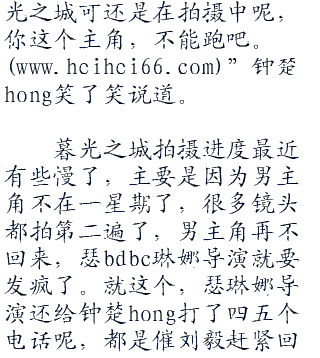 光之城可还是在拍摄中呢，
你这个主角，不能跑吧。
(www.hcihci66.com)”钟楚
hong笑了笑说道。
暮光之城拍摄进度最近
有些慢了，主要是因为男主
角不在一星期了，很多镜头
都拍第二遍了，男主角再不
回来，瑟bdbc琳娜导演就要
发疯了。就这个，瑟琳娜导
演还给钟楚hong打了四五个
电话呢，都是催刘毅赶紧回